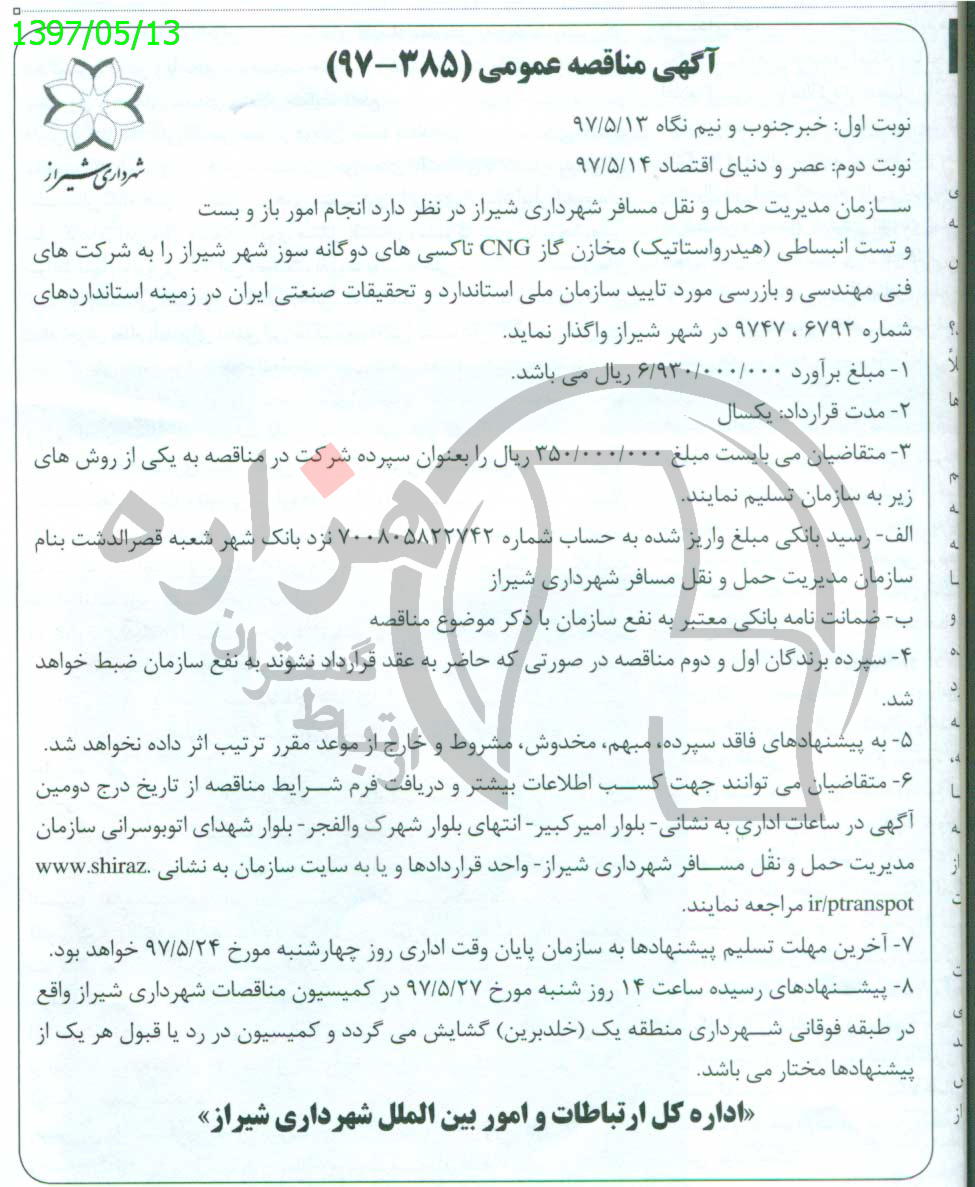 1397/05/13
آگهی مناقصه عمومی (۳۸۵-۹۷)
شهرداری شیراز
نوبت اول: خبرجنوب و نیم نگاه ۹۷/۵/۱۳
نوبت دوم: عصر و دنیای اقتصاد ۹۷/۵/۱۴
سازمان مدیریت حمل و نقل مسافر شهرداری شیراز در نظر دارد انجام امور باز و بست
و تست انبساطی (هیدرواستاتیک) مخازن گاز CNG تاکسی های دوگانه سوز شهر شیراز را به شرکت های
فنی مهندسی و بازرسی مورد تایید سازمان ملی استاندارد و تحقیقات صنعتی ایران در زمینه استانداردهای
شماره ۶۷۹۲، ۹۷۴۷ در شهر شیراز واگذار نماید.
۱- مبلغ برآورد ۶/۹۳۰/۰۰۰/۰۰۰ ریال می باشد.
۲- مدت قرارداد: یکسال
۳- متقاضیان می بایست مبلغ ۳۵۰/۰۰۰/۰۰۰ ریال را بعنوان سپرده شرکت در مناقصه به یکی از روش های
زیر به سازمان تسلیم نمایند.
الف- رسید بانکی مبلغ واریز شده به حساب شماره ۷۰۰۸۰۵۸۲۲۷۴۲ نزد بانک شهر شعبه قصرالدشت بنام
سازمان مدیریت حمل و نقل مسافر شهرداری شیراز
ب- ضمانت نامه بانکی معتبر به نفع سازمان با ذکر موضوع مناقصه
۴- سپرده برندگان اول و دوم مناقصه در صورتی که حاضر به عقد قرارداد نشوند به نفع سازمان ضبط خواهد
شد.
۵- به پیشنهادهای فاقد سپرده، مبهم، مخدوش، مشروط و خارج از موعد مقرر ترتیب اثر داده نخواهد شد.
۶- متقاضیان می توانند جهت کسب اطلاعات بیشتر و دریافت فرم شرایط مناقصه از تاریخ درج دومین
آگهی در ساعات اداری به نشانی- بلوار امیرکبیر- انتهای بلوار شهرک والفجر- بلوار شهدای اتوبوسرانی سازمان
مدیریت حمل و نقل مسافر شهرداری شیراز- واحد قراردادها و یا به سایت سازمان به نشانی www.shiraz.
ir/ptranspot مراجعه نمایند.
۷- آخرین مهلت تسلیم پیشنهادها به سازمان پایان وقت اداری روز چهارشنبه مورخ ۹۷/۵/۲۴ خواهد بود.
۸- پیشنهادهای رسیده ساعت ۱۴ روز شنبه مورخ ۹۷/۵/۲۷ در کمیسیون مناقصات شهرداری شیراز واقع
در طبقه فوقانی شهرداری منطقه یک (خلدبرین) گشایش می گردد و کمیسیون در رد یا قبول هر یک از
پیشنهادها مختار می باشد.
«اداره کل ارتباطات و امور بین الملل شهرداری شیراز»
هزاره
گستران
ارتباط